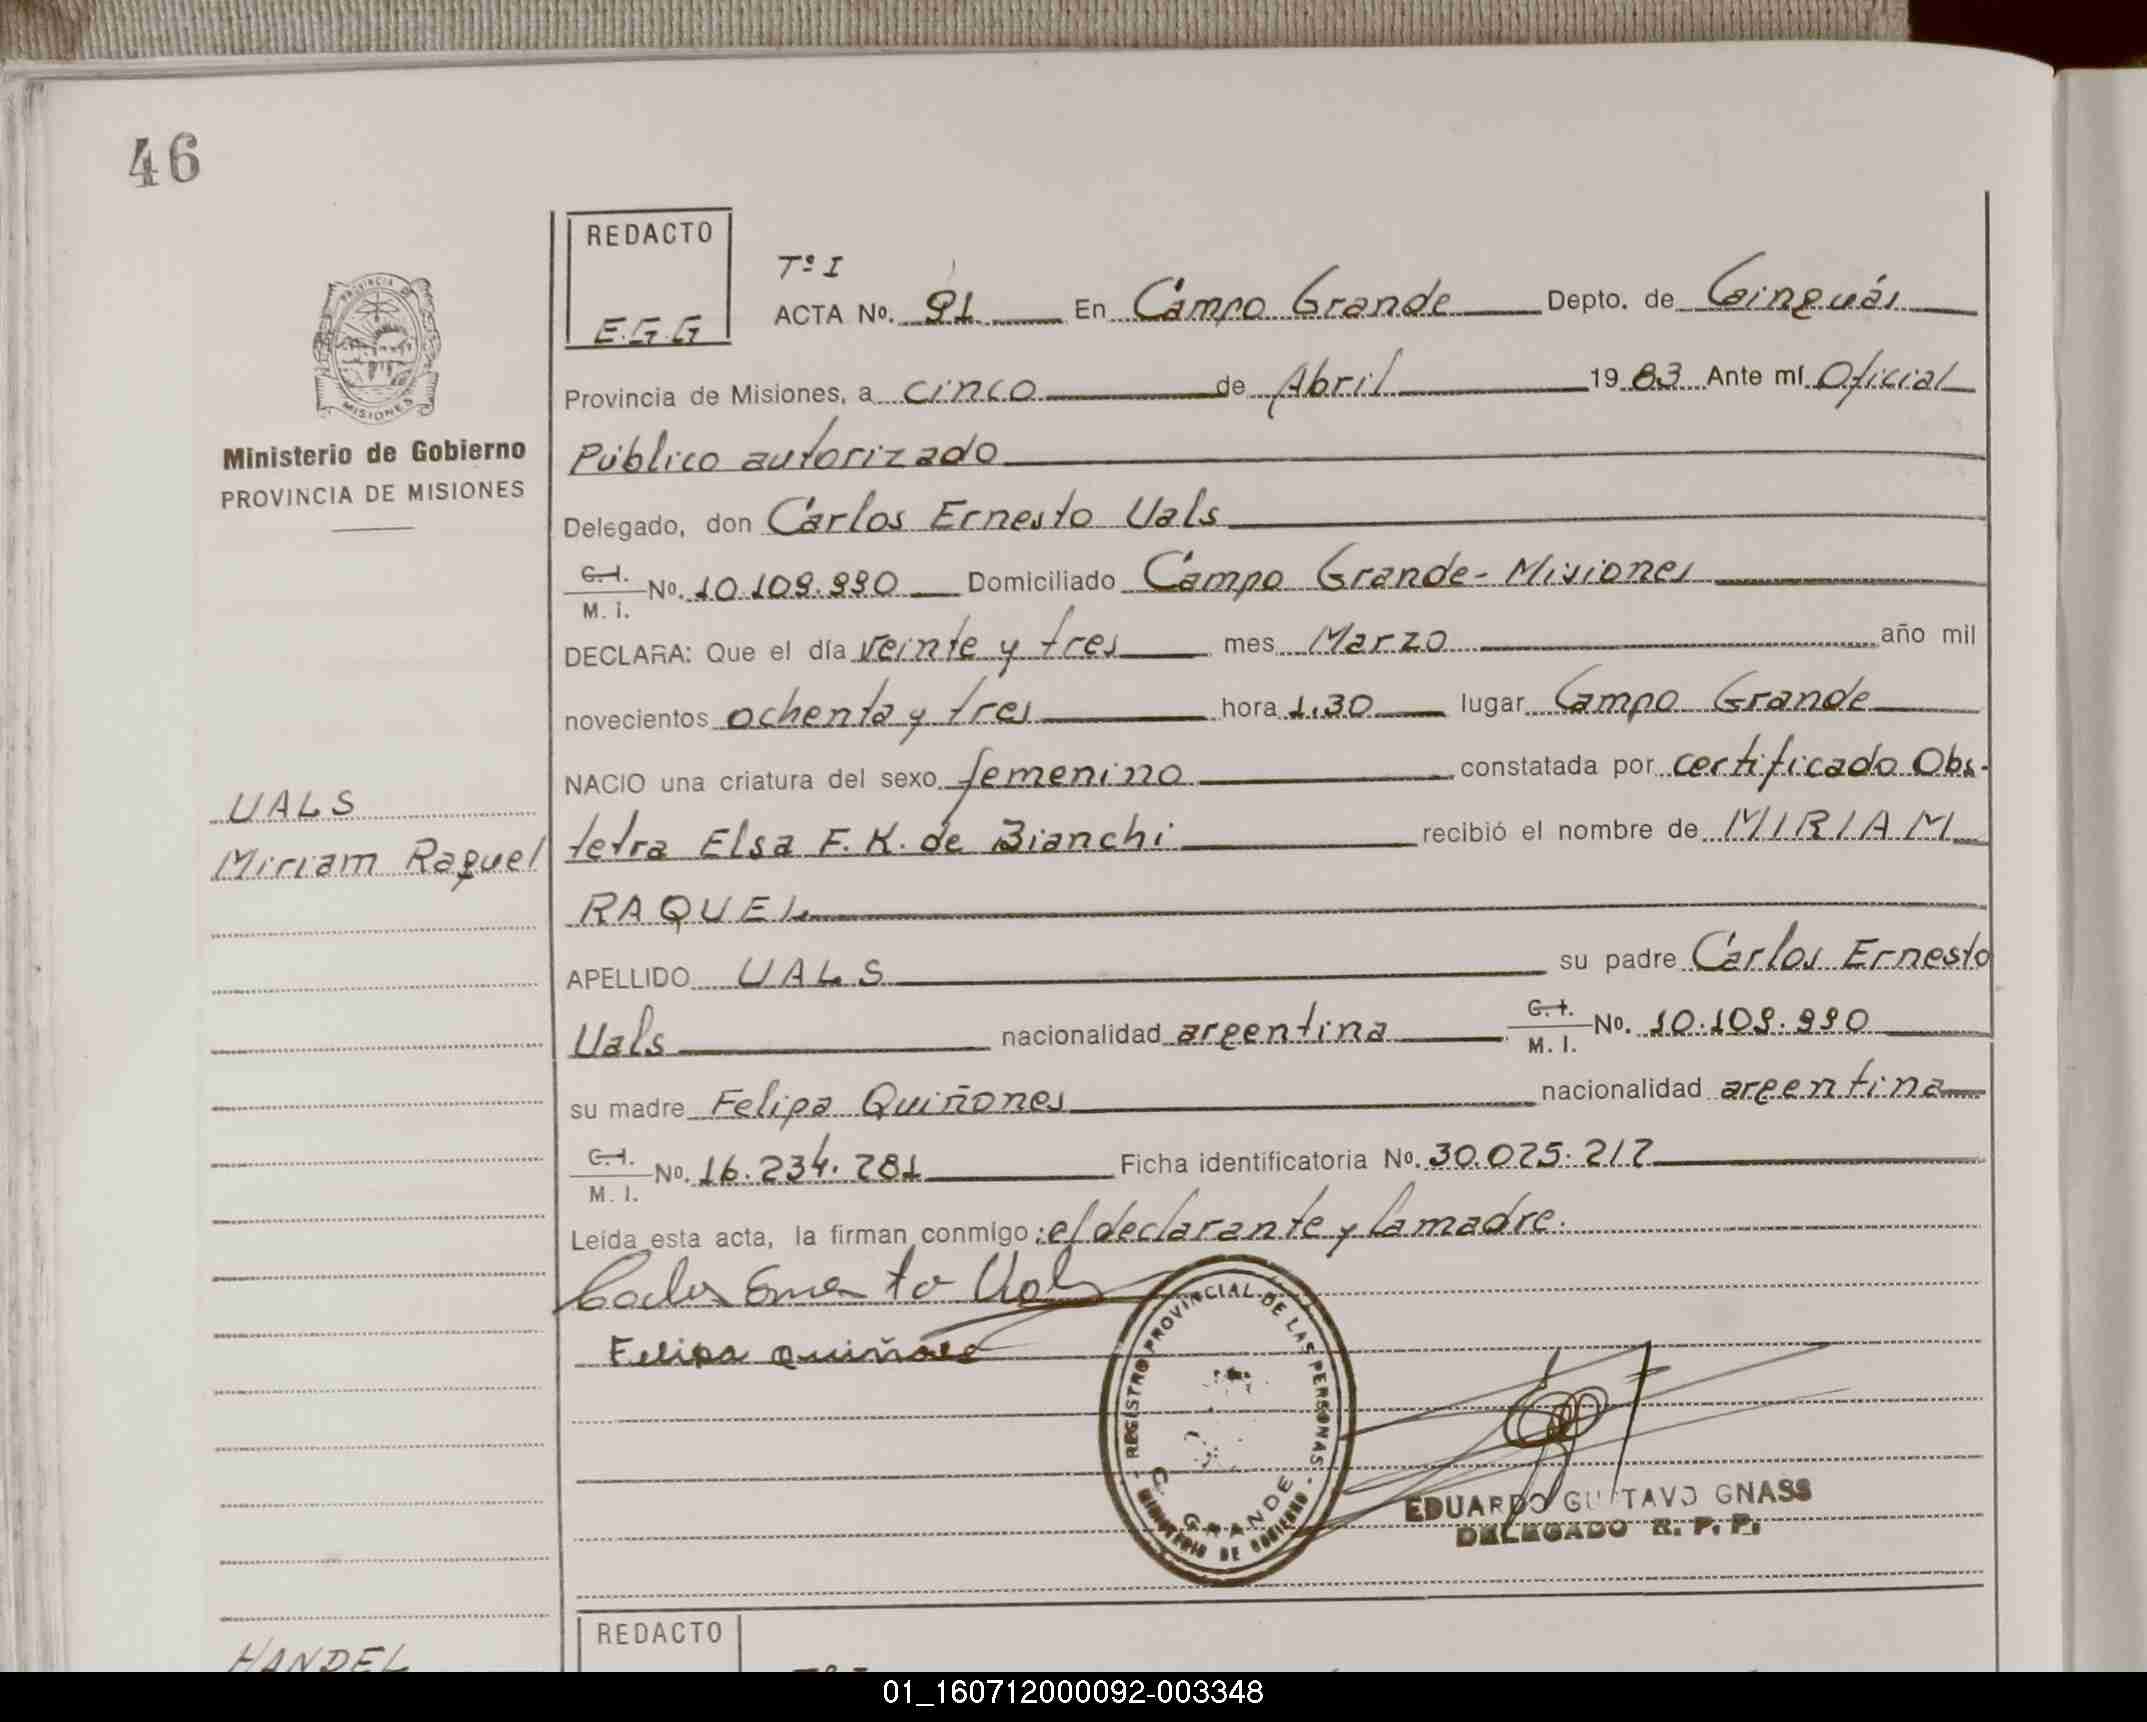 46
REDACTO
E.G.G
Tº I
ACTA Nº. 91 En Campo Grande Depto. de Cainguás
Provincia de Misiones, a cinco de Abril 1983 Ante mí Oficial
Público autorizado
Delegado, don Carlos Ernesto Uals
C.I. M. I. Nº. 10.109.990 Domiciliado Campo Grande-Misiones
DECLARA: Que el día veinte y tres mes Marzo año mil
novecientos ochenta y tres hora 1.30 lugar Campo Grande
NACIO una criatura del sexo femenino constatada por certificado Obs-
tetra Elsa F. K. de Bianchi recibió el nombre de MIRIAM
RAQUEL
APELLIDO UALS su padre Carlos Ernesto
Uals nacionalidad argentina C.I. M. I. Nº. 10.109.990
su madre Felipa Quiñones nacionalidad argentina
C.I. M. I. Nº. 16.234.281 Ficha identificatoria Nº. 30.025.212
Leída esta acta, la firman conmigo: el declarante y la madre.
Carlos Ernesto Uals
Felipa Quiñones
REGISTRO PROVINCIAL DE LAS PERSONAS
C. GRANDE
MINISTERIO DE GOBIERNO
EDUARDO GUSTAVO GNASS
DELEGADO R. P. P.
PROVINCIA DE
MISIONES
Ministerio de Gobierno
PROVINCIA DE MISIONES
UALS
Miriam Raquel
HANDEL
REDACTO
Tº I
01_160712000092-003348